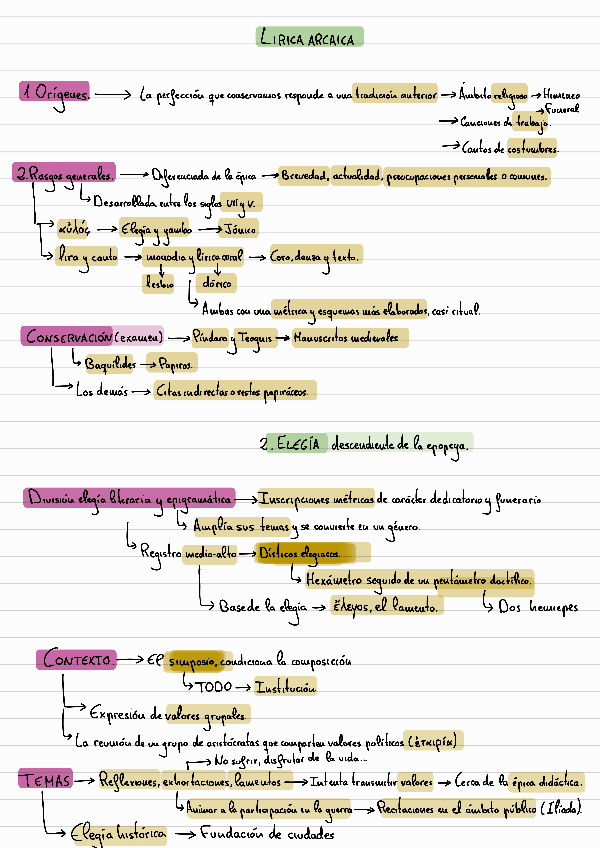 LIRICA ARCAICA
1 Orígenes. → La perfección que conservamos responde a una tradición anterior → Ámbito religioso → Himeneo
→ Funeral
→ Canciones de trabajo.
→ Cantos de costumbres.
2. Rasgos generales. → Diferenciada de la épica → Brevedad, actualidad, preocupaciones personales o comunes.
Desarrollada entre los siglos VII y V.
αὐλός → Elegía y yambo → Jónico
lira y canto → monodia y lírica coral → Coro, danza y texto.
lesbio dórico
Ambas con una métrica y esquemas más elaborados, casi ritual.
CONSERVACIÓN (examen) → Píndaro y Teognis → Manuscritos medievales
Baquílides → Papiros.
Los demás → Citas indirectas o restos papiráceos.
2. ELEGÍA descendiente de la epopeya.
División elegía literaria y epigramática → Inscripciones métricas de carácter dedicatorio y funerario
Amplía sus temas y se convierte en un género.
Registro medio-alto → Dísticos elegiacos.
Hexámetro seguido de un pentámetro dactílico.
Base de la elegía → ἔλεγος, el lamento. Dos hemiepes
CONTEXTO → El simposio, condiciona la composición
TODO → Institución
Expresión de valores grupales.
La reunión de un grupo de aristócratas que comparten valores políticos (ἑταιρία)
→ No sufrir, disfrutar de la vida...
TEMAS → Reflexiones, exhortaciones, lamentos → Intenta transmitir valores → Cerca de la épica didáctica.
Animar a la participación en la guerra → Recitaciones en el ámbito público (Ilíada).
Elegía histórica → Fundación de ciudades